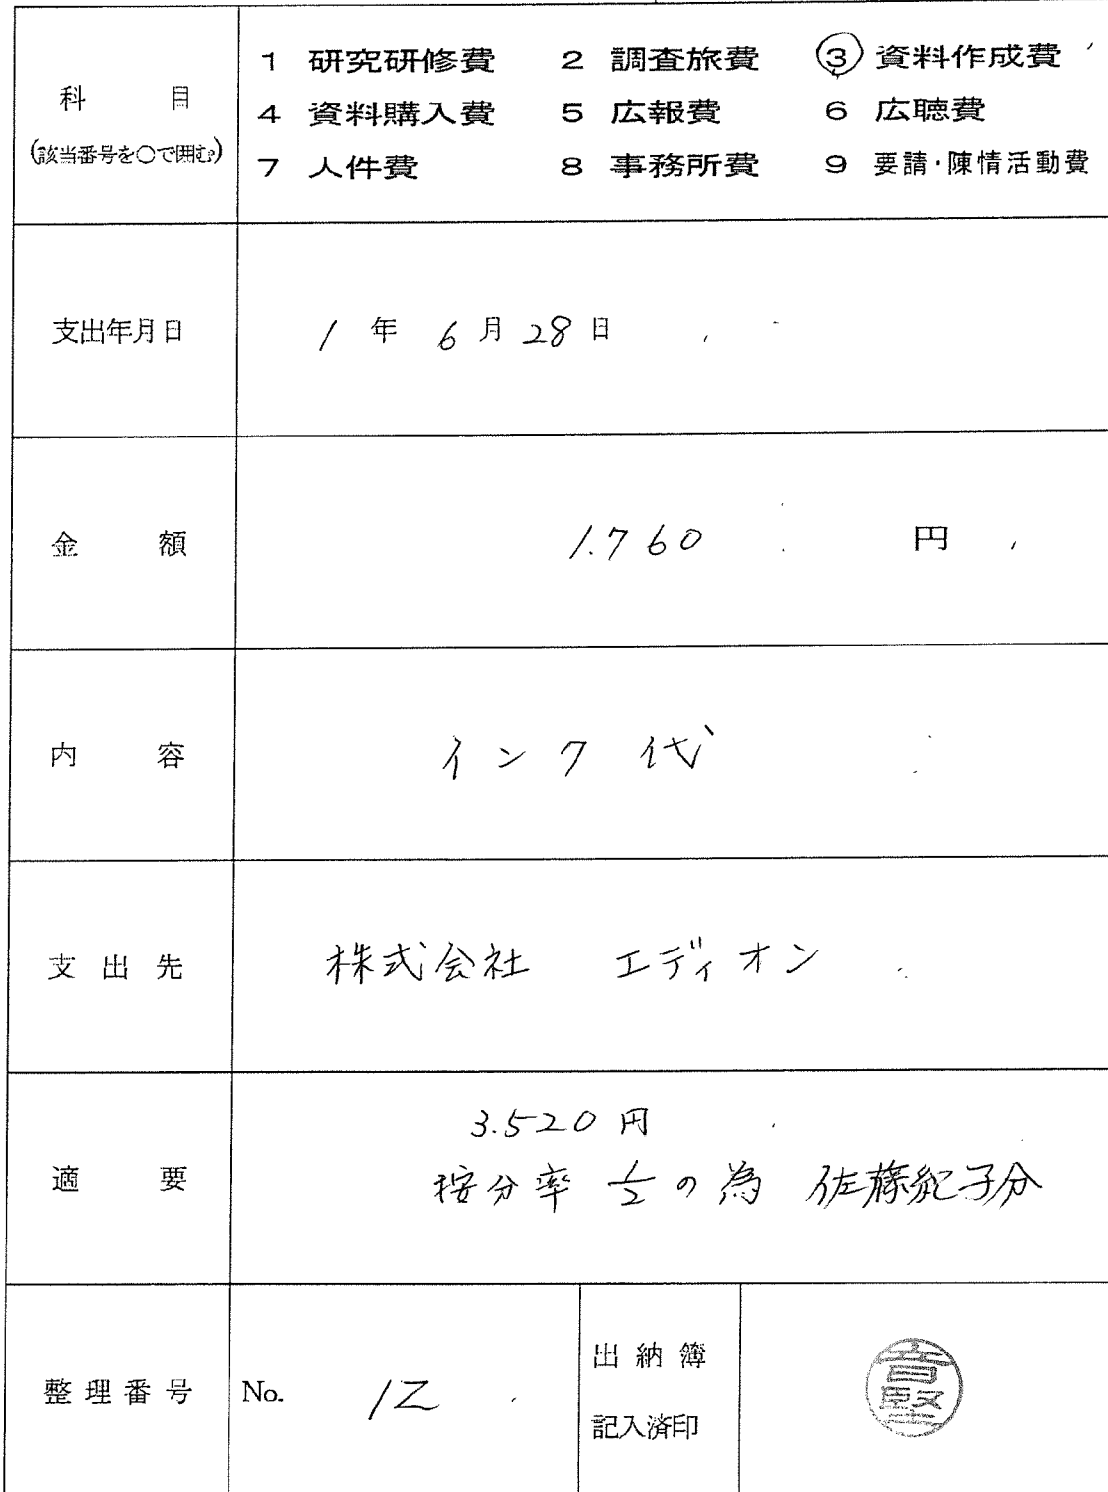 科 目
(該当番号を○で囲む)
1 研究研修費 2 調査旅費 ③ 資料作成費
4 資料購入費 5 広報費 6 広聴費
7 人件費 8 事務所費 9 要請・陳情活動費
支出年月日 1 年 6 月 28 日
金 額 1.760 円
内 容 インク代
支 出 先 株式会社 エディオン
適 要 3.520 円
按分率 1/2 の為 佐藤紀子分
整 理 番 号 No. 12
出 納 簿
記入済印